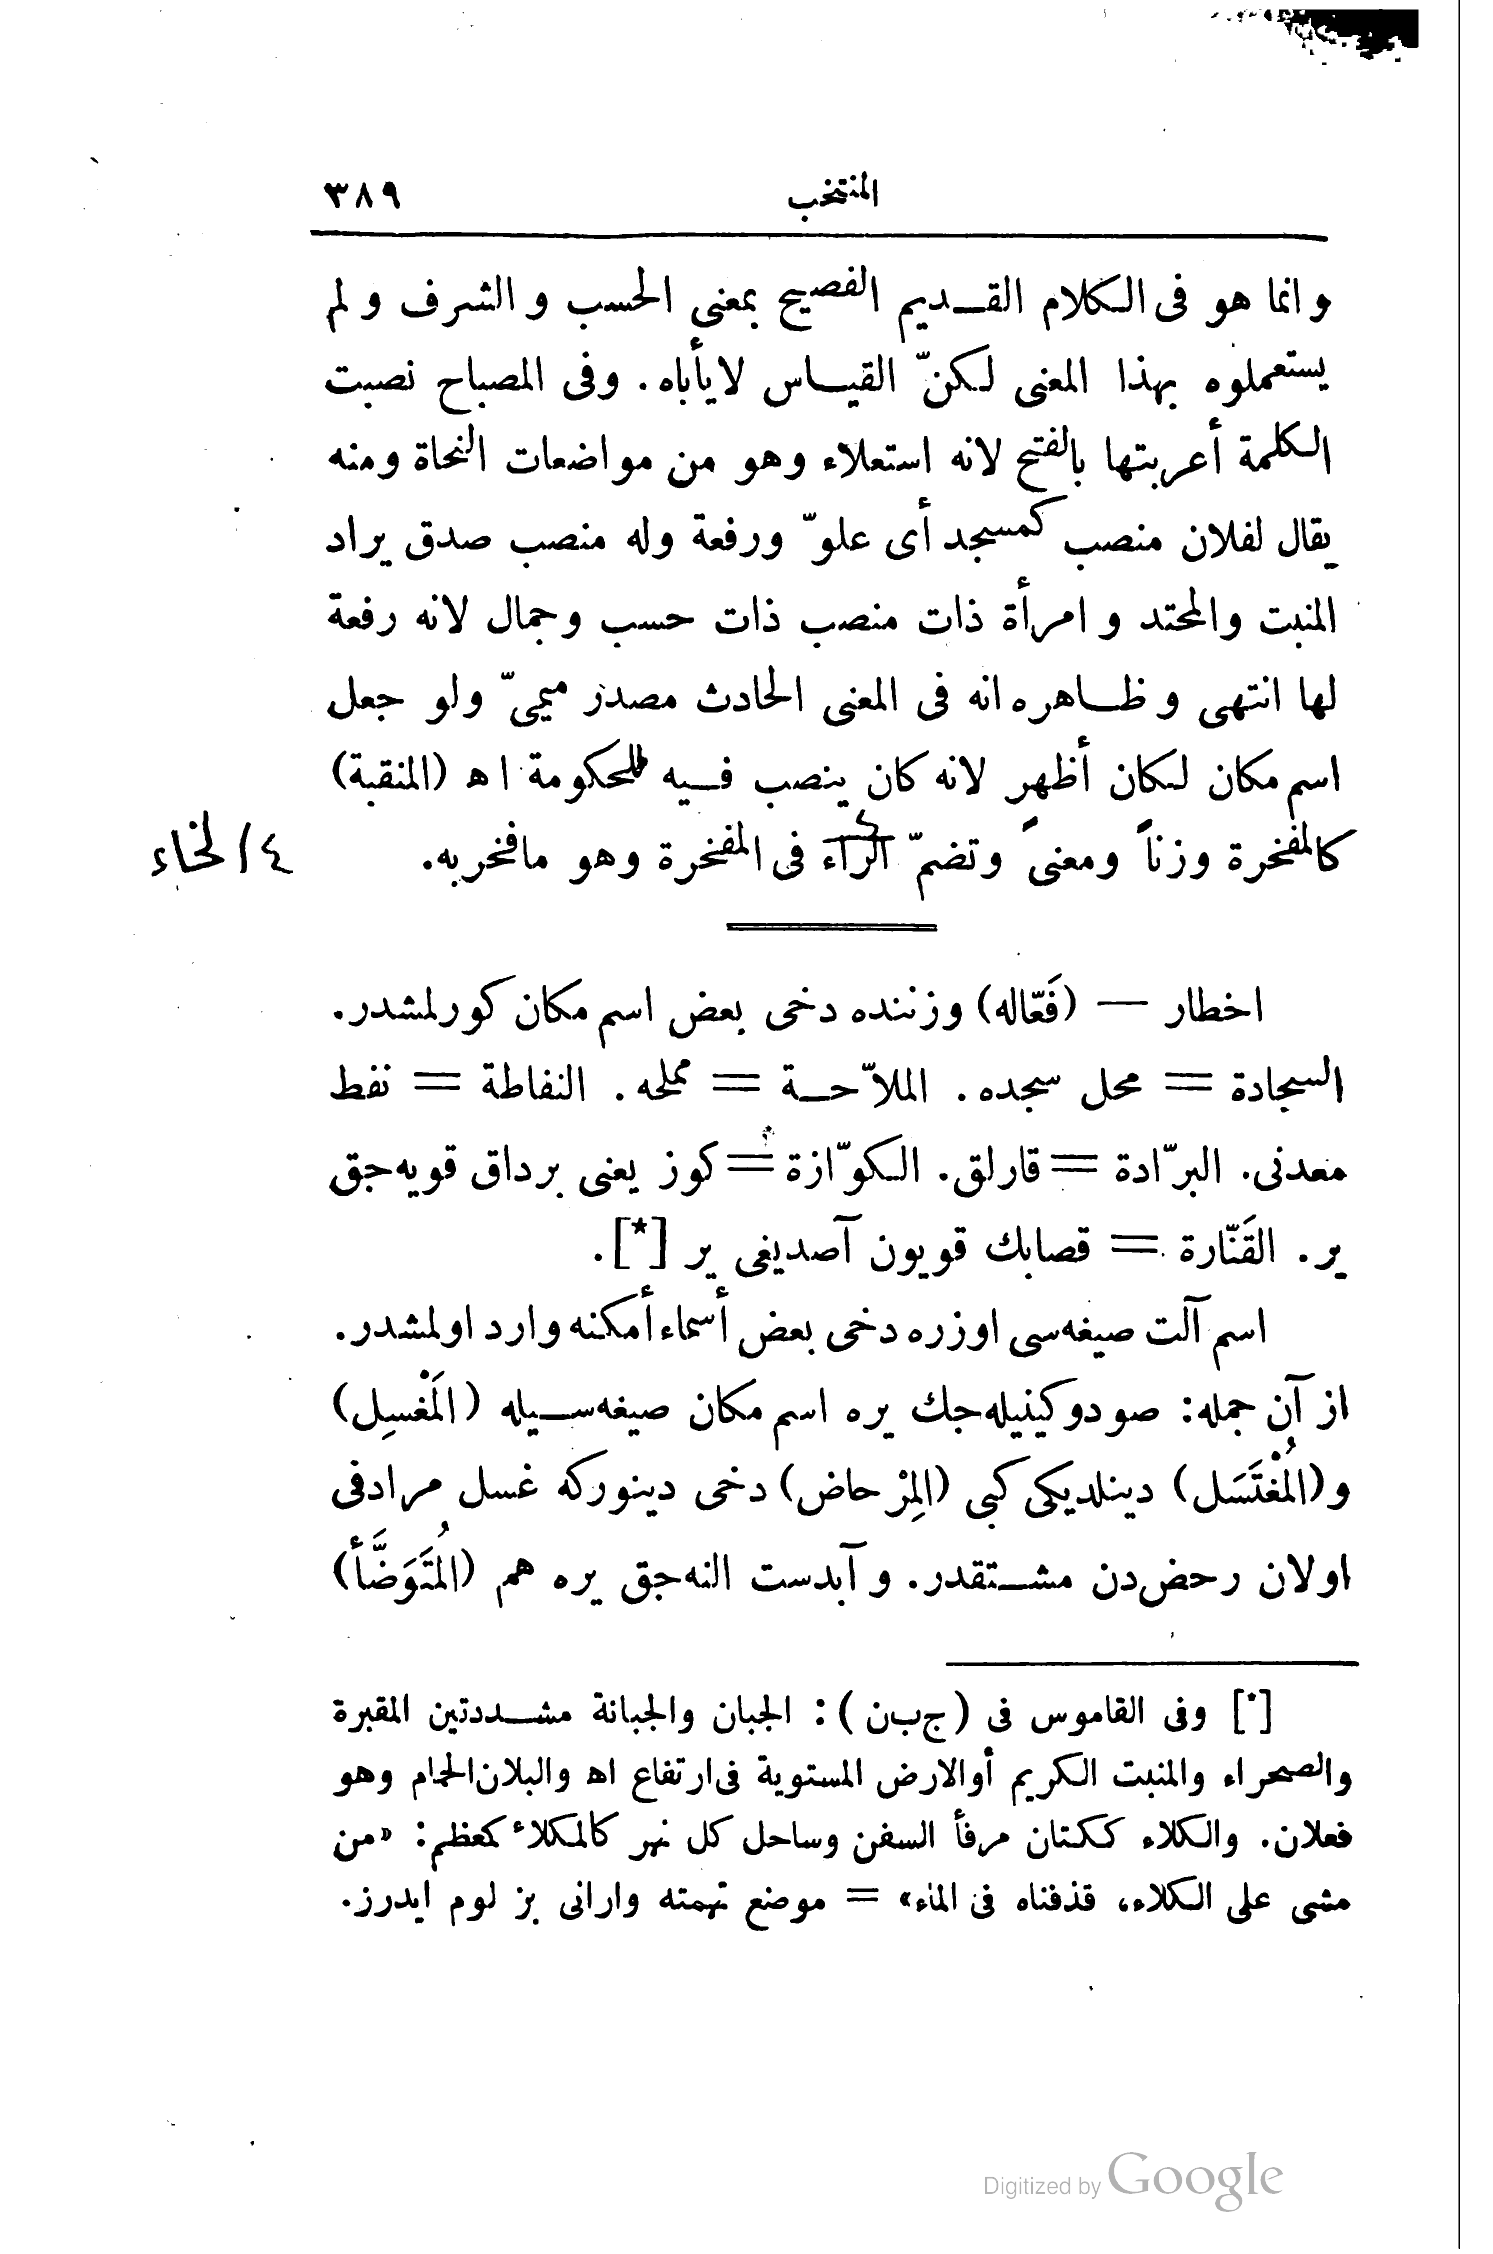 المنتخب ٣٨٩
وانما هو فى الكلام القديم الفصيح بمعنى الحسب والشرف ولم
يستعملوه بهذا المعنى لكنّ القياس لايأباه. وفى المصباح نصبت
الكلمة أعربتها بالفتح لانه استعلاء وهو من مواضعات النحاة ومنه
يقال لفلان منصب كمسجد أى علوّ ورفعة وله منصب صدق يراد
المنبت والمحتد وامرأة ذات منصب ذات حسب وجمال لانه رفعة
لها انتهى وظاهره انه فى المعنى الحادث مصدر ميمىّ ولو جعل
اسم مكان لكان أظهر لانه كان ينصب فيه للحكومة اه (المنقبة)
كالمفخرة وزناً ومعنىً وتضمّ الراء فى المفخرة وهو مافخربه.
الخاء
اخطار — (فَعّاله) وزننده دخى بعض اسم مكان كورلمشدر.
السجادة = محل سجده. الملاّحة = مملحه. النفاطة = نفط
معدنى. البرّادة = قارلق. الكوّازة = كوز يعنى برداق قويه‌جق
ير. القَنّارة = قصابك قويون آصديغى ير [*].
اسم آلت صيغه‌سى اوزره دخى بعض أسماء أمكنه وارد اولمشدر.
از آن جمله: صو دوكينيله‌جك يره اسم مكان صيغه‌سيله (المَغْسِل)
و(المُغْتَسَل) دينلديكى كبى (المِرْحاض) دخى دينوركه غسل مرادفى
اولان رحض‌دن مشتقدر. و آبدست النه‌جق يره هم (المُتَوَضَّأ)
[*] وفى القاموس فى (ج‌ب‌ن): الجبان والجبانة مشددتين المقبرة
والصحراء والمنبت الكريم أوالارض المستوية فى‌ارتفاع اه والبلان‌الحمام وهو
فعلان. والكلاء ككتان مرفأ السفن وساحل كل نهر كالمكلاء كمعظم: «من
مشى على الكلاء، قذفناه فى الماء» = موضع تهمته وارانى بز لوم ايدرز.
Digitized by Google